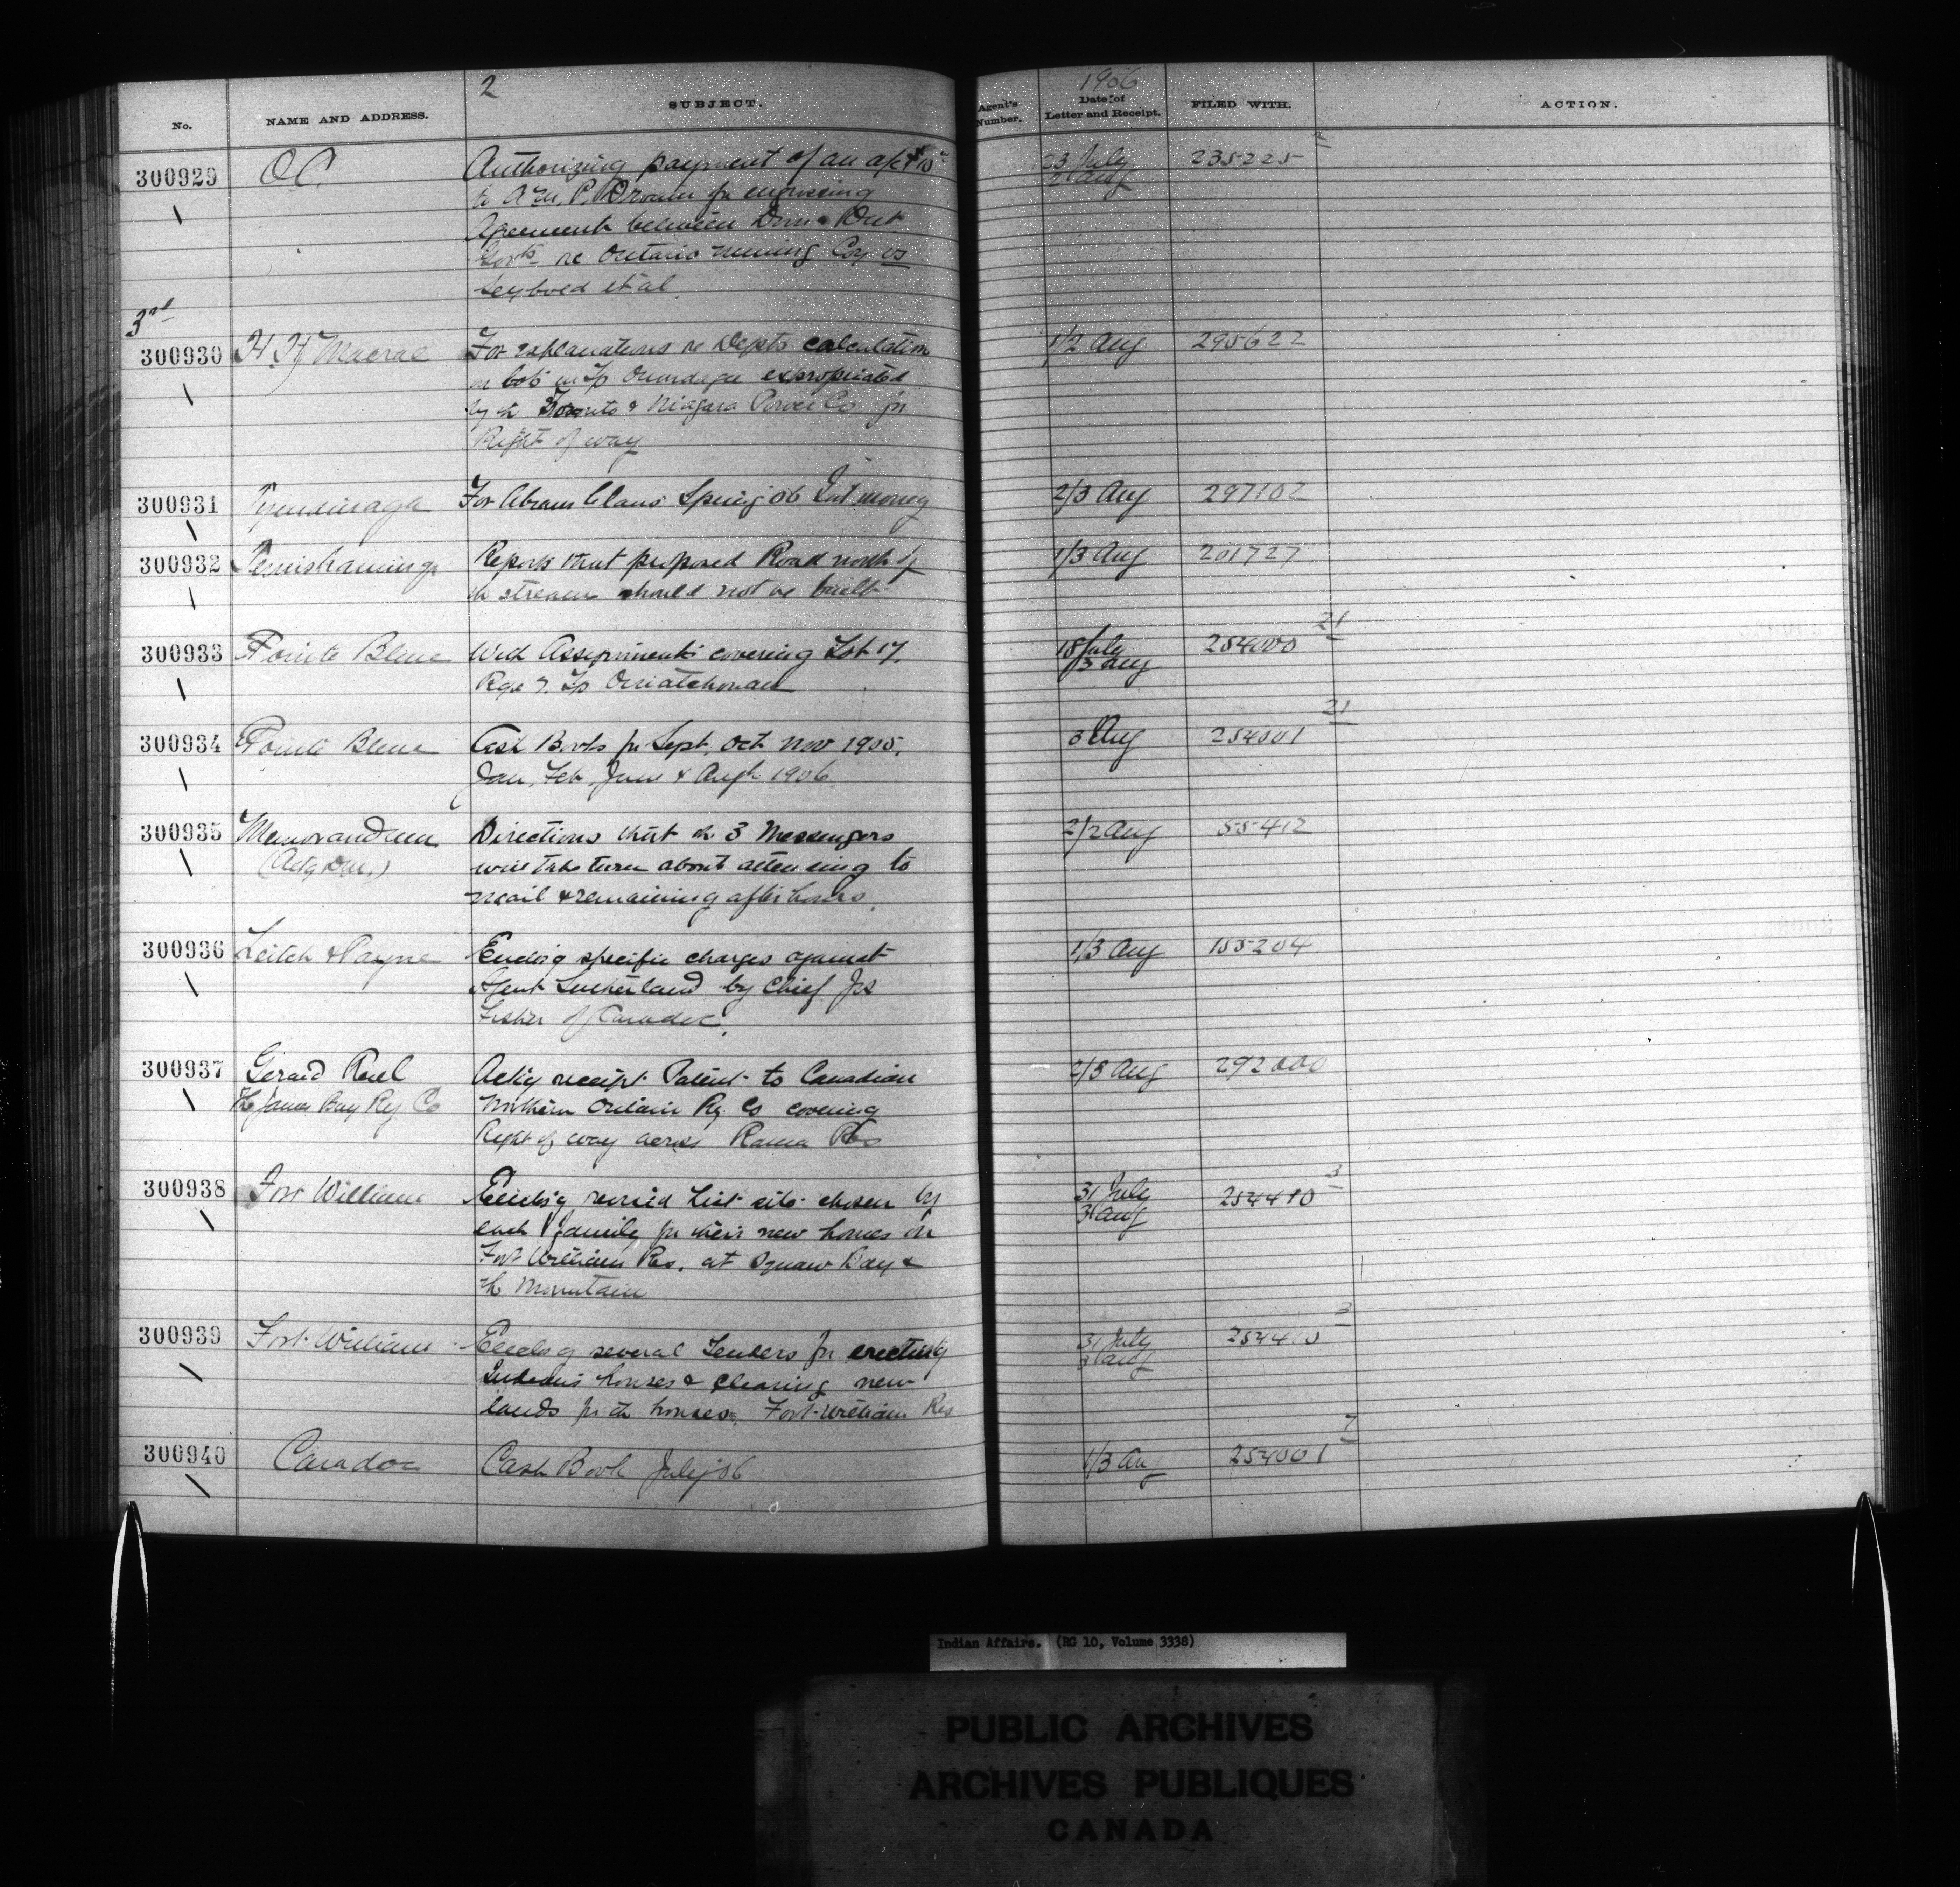 2
1906
No.
NAME AND ADDRESS.
SUBJECT.
Agent's Number.
Date of Letter and Receipt.
FILED WITH.
ACTION.
300929 O.C. Authorizing payment of an a/c 23 July 235225 2
to P. Brown for engrossing 2 Aug
Agreement between Dom & Ont
Govts re Ontario mining Coy vs
Seybold et al.
3rd
300930 H. H. Macrae For explanations re Depts calculation 1/2 Aug 295622
on lots in Tp Onondaga expropriated
by th Toronto & Niagara Power Co for
Right of way
300931 Tyendinaga For Abram Claus Spring '06 Int money 2/3 Aug 297102
300932 Temiskamingue Reports that proposed Road north of 1/3 Aug 201727
th stream should not be built
300933 Pointe Bleue With Assignments covering Lot 17, 18 July 254000 21
Rge 7. Tp Ouiatchouan /3 Aug
300934 Pointe Bleue Cash Books for Sept. Oct Nov 1905. 3 Aug 254001 21
Jan, Feb, June & 1906
300935 Memorandum Directions that th 3 Messengers 2/2 Aug 55412
will take turn about attending to
mail & remaining after hours.
300936 Leitch & Payne Enclosg specific charges against 1/3 Aug 155204
Agent Sutherland by Chief Jos
Fisher of Caradoc.
300937 Gerard Ruel Ackg receipt Patent to Canadian 2/3 Aug 292000
The James Bay Ry Co Northern Ontario Ry. Co covering
Right of way across Rama Res
300938 Fort William Enclosg revised List site chosen by 31 July 254410 3
each family for their new homes on 3 Aug
Fort William Res. at Squaw Bay &
th Mountain
300939 Fort William Enclosg several Tenders for erecting 31 July 254410 3
Indians houses & clearing new 3 Aug
lands for th houses. Fort William Res
300940 Caradoc Cash Book July '06 1/3 Aug 254001 7
Indian Affairs. (RG 10, Volume 3338)
PUBLIC ARCHIVES
ARCHIVES PUBLIQUES
CANADA